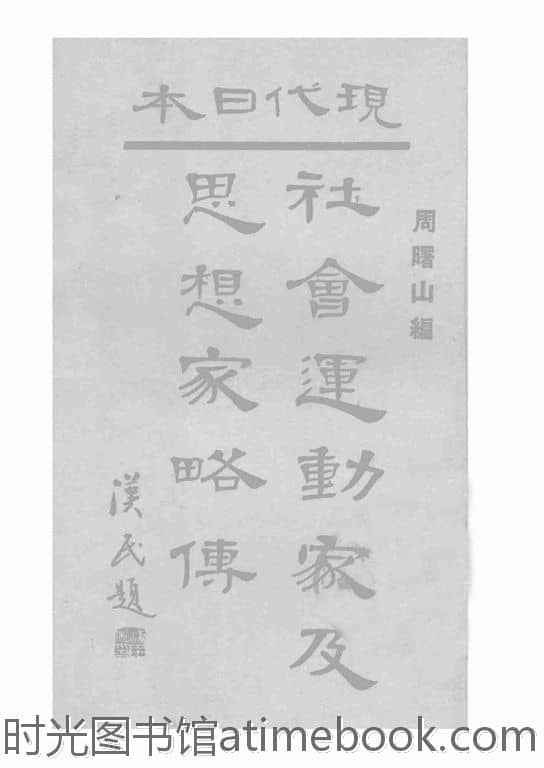 現代日本
周曙山編
社會運動家及
思想家略傳
漢民題
时光图书馆atimebook.com